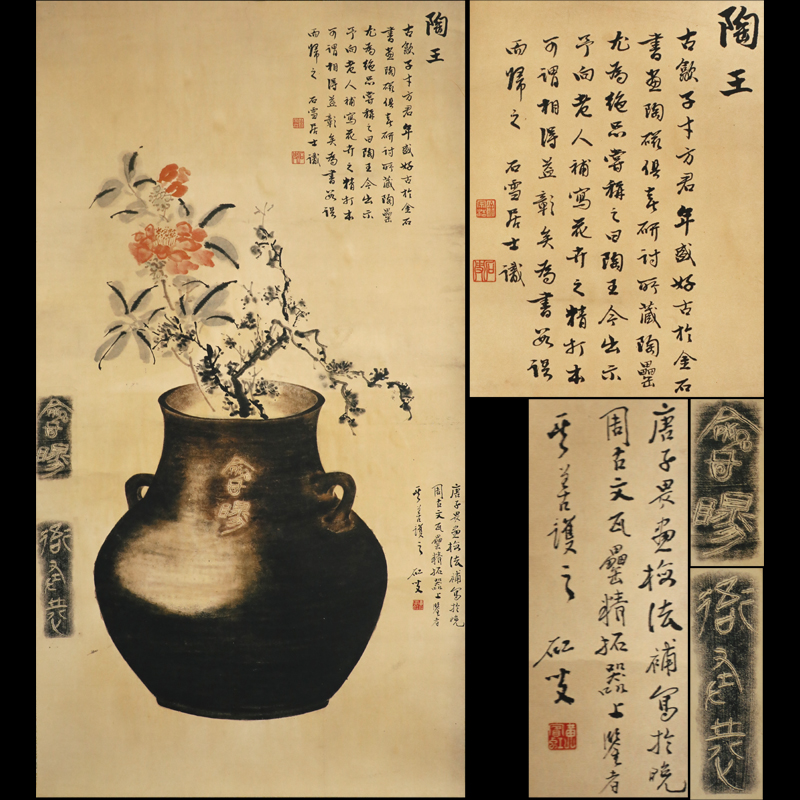 陶王
古歙子才方君年盛好古於金石
書畫陶磁俱喜研討所藏陶罍
尤為絶品嘗稱之曰陶王今出示
予向老人補寫花卉之精打本
可謂相得益彰矣為書數語
而歸之 石雪居士識
唐子畏畫梅法補寫於晚
周古文瓦罍精拓器上鑒者
其善護之
陶王
古歙子才方君年盛好古於金石
書畫陶磁俱喜研討所藏陶罍
尤為絶品嘗稱之曰陶王今出示
予向老人補寫花卉之精打本
可謂相得益彰矣為書數語
而歸之 石雪居士識
唐子畏畫梅法補寫於晚
周古文瓦罍精拓器上鑒者
其善護之